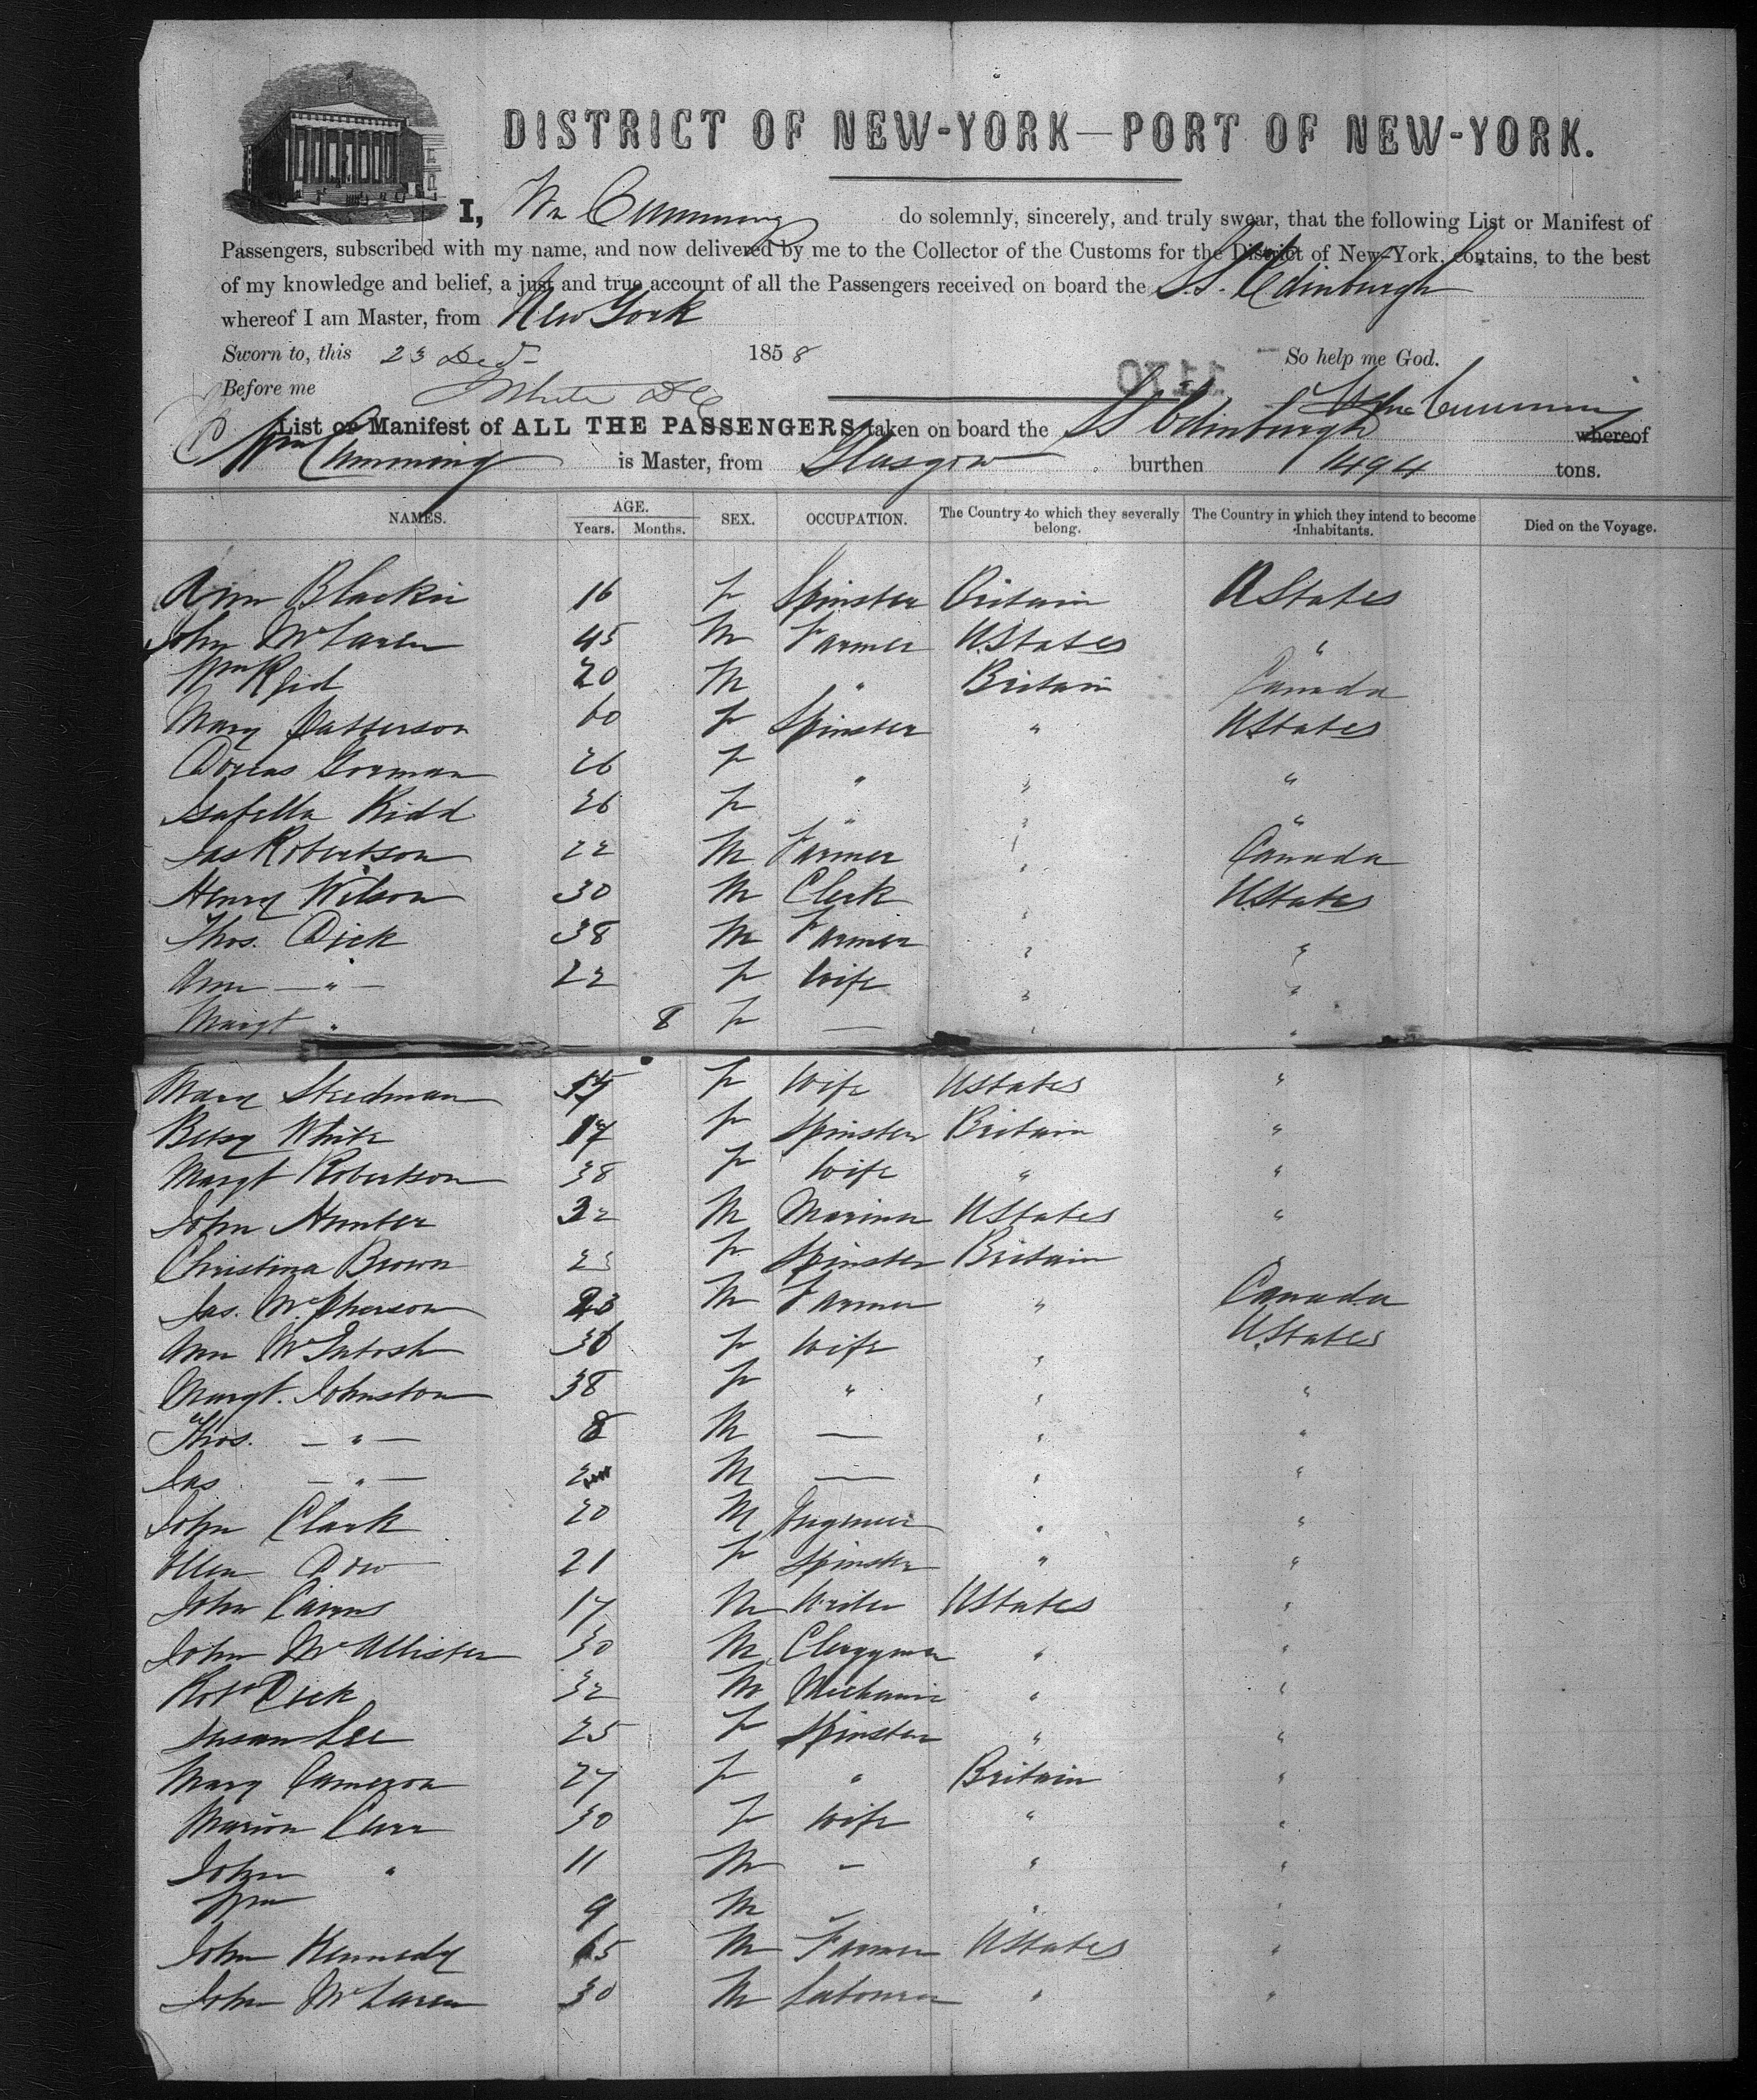 DISTRICT OF NEW-YORK—PORT OF NEW-YORK.
I, Wm Cumming do solemnly, sincerely, and truly swear, that the following List or Manifest of
Passengers, subscribed with my name, and now delivered by me to the Collector of the Customs for the District of New-York, contains, to the best
of my knowledge and belief, a just and true account of all the Passengers received on board the S.S. Edinburgh
whereof I am Master, from New York
Sworn to, this 23 Dec 1858 So help me God.
Before me White Wm Cumming
List or Manifest of ALL THE PASSENGERS taken on board the SS Edinburgh whereof
Wm Cumming is Master, from Glasgow burthen 1494 tons.
NAMES. AGE. Years. Months. SEX. OCCUPATION. The Country to which they severally belong. The Country in which they intend to become Inhabitants. Died on the Voyage.
Ann Blackie 16 F Spinster Britain UStates
John McLaren 45 M Farmer UStates "
Wm Reid 20 M " Britain Canada
Mary Patterson 60 F Spinster " UStates
Dorcas Gorman 26 F " " "
Isabella Kidd 26 F " " "
Jas Robertson 22 M Farmer " Canada
Henry Wilson 30 M Clerk " UStates
Thos. Dick 38 M Farmer " "
Ann — " — 22 F Wife " "
Margt " 8 F — " "
Mary Steedman F Wife UStates "
Betsy White 17 F Spinster Britain "
Margt Robertson 38 F Wife " "
John Hunter 32 M Mariner UStates "
Christina Brown 23 F Spinster Britain
Jas. McPherson 23 M Farmer " Canada
Ann McIntosh 36 F Wife " UStates
Margt. Johnston 38 F " " "
Thos. — " — 8 M — " "
Jas — " — 2 M — " "
John Clark 20 M Engineer " "
Ellen Dow 21 F Spinster " "
John Cairns 17 M Writer UStates "
John McAllister 30 M Clergyman " "
Robt Dick 32 M Mechanic " "
Susan Lee 25 F Spinster " "
Mary Cameron 27 F " Britain "
Marion Carr 30 F Wife " "
John " 11 M – " "
Wm 9 M – " "
John Kennedy 65 M Farmer UStates "
John McLaren 30 M Labourer " "